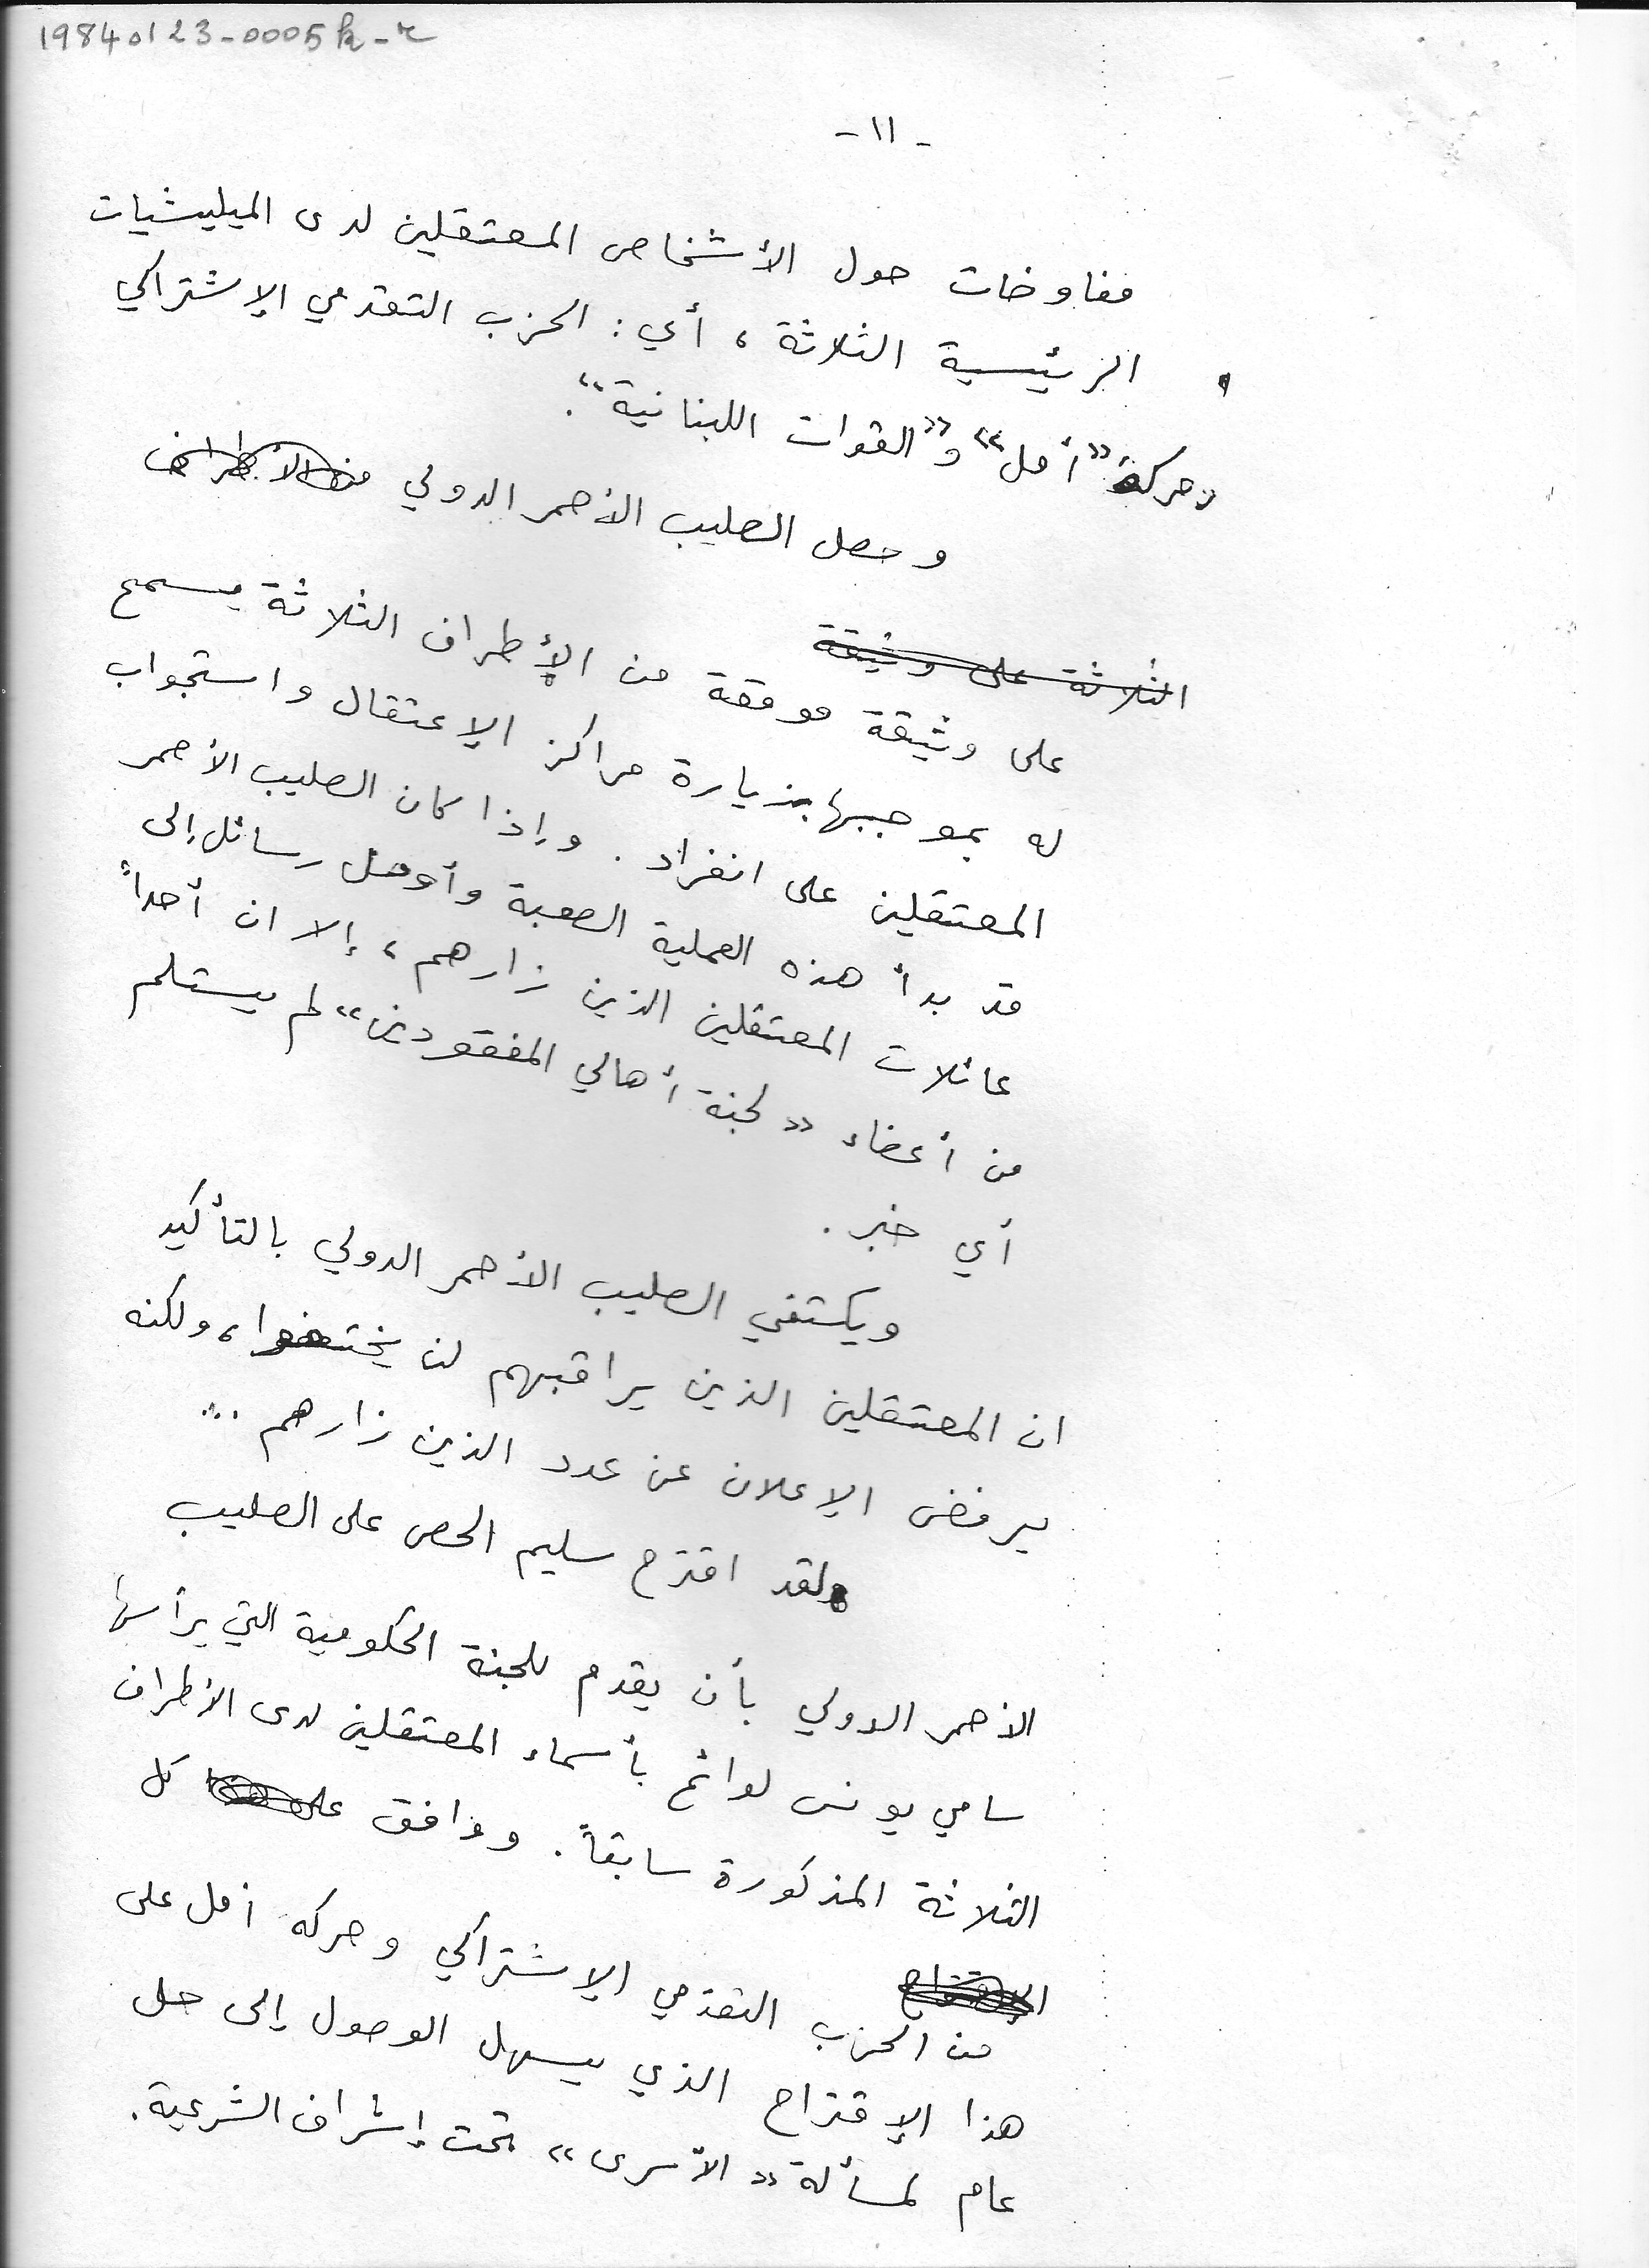 19840123-0005k-r
- ١١ -
مفاوضات حول الأشخاص المعتقلين لدى الميليشيات
الرئيسية الثلاثة، أي: الحزب التقدمي الإشتراكي
وحركة "أمل" و"القوات اللبنانية".
وحصل الصليب الأحمر الدولي من الأطراف
الثلاثة على وثيقة
على وثيقة موقعة من الأطراف الثلاثة يسمح
له بموجبها بزيارة مراكز الإعتقال واستجواب
المعتقلين على انفراد. وإذا كان الصليب الأحمر
قد بدأ هذه العملية الصعبة وأوصل رسائل إلى
عائلات المعتقلين الذين زارهم، إلا ان أحداً
من أعضاء "لجنة أهالي المفقودين" لم يستلم
أي خبر.
ويكتفي الصليب الأحمر الدولي بالتأكيد
ان المعتقلين الذين يراقبهم لن يختفوا، ولكنه
يرفض الإعلان عن عدد الذين زارهم...
ولقد اقترح سليم الحص على الصليب
الأحمر الدولي بأن يقدم للجنة الحكومية التي يرأسها
سامي يونس لوائح بأسماء المعتقلين لدى الأطراف
الثلاثة المذكورة سابقاً. ووافق على هذا كل
الإقتراح
من الحزب التقدمي الإشتراكي وحركه أمل على
هذا الإقتراح الذي يسهل الوصول إلى حل
عام لمسألة "الأسرى" تحت إشراف الشرعية.